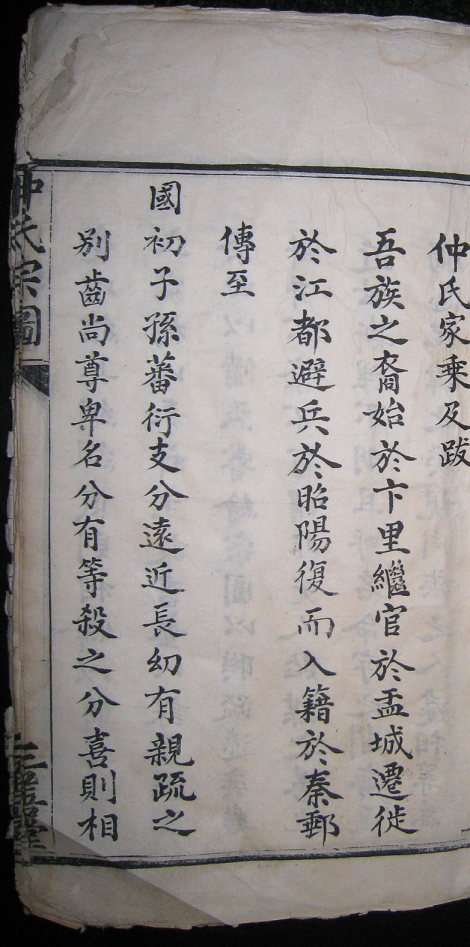 仲氏家乘及跋
吾族之裔始於卞里繼官於盂城遷徙
於江都避兵於昭陽復而入籍於秦郵
傳至
國初子孫蕃衍支分遠近長幼有親疏之
別齒尚尊卑名分有等殺之分喜則相
仲氏宗圖